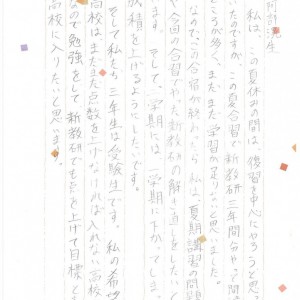 私は、この夏休みの間は、復習を中心にやろうと思
いたのですが、この夏合宿で新教研三年間分やって問
ころが多く、まだまだ学習が足りないと思いました。
なのでこの合宿が終わったら私は、夏期講習の問題
や今回の合宿でやった新教研の解き直しをしたい
ます。そして、一学期には、学期に下がってしま
績を上げるようにしたいです。
そして私たち三年生は受験生です。私の希望
高校は、まだまだ点数を上げなければ入れない高校
の勉強をして新教研でもっと上げて目標と
高校に入りたいと思います。